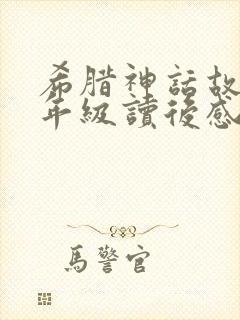 希腊神話故
年級讀後感
馬警官